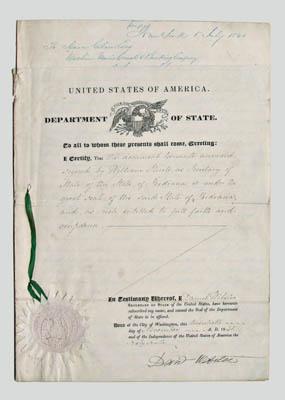 Copy
New York 1 July 18
To
Morris Canal & Banking Company
UNITED STATES OF AMERICA.
DEPARTMENT OF STATE.
To all to whom these presents shall come, Greeting:
I Certify, That the document hereunto annexed,
signed by William as Secretary of
State of the State of Indiana is under the
great seal of the said State of Indiana,
and is entitled to full faith and
credence.
In Testimony Whereof, I Daniel Webster
Secretary of State of the United States, have hereunto
subscribed my name, and caused the Seal of the Department
of State to be affixed.
Done at the City of Washington, this
day of A. D. 18
and of the Independence of the United States of America the
Danl Webster